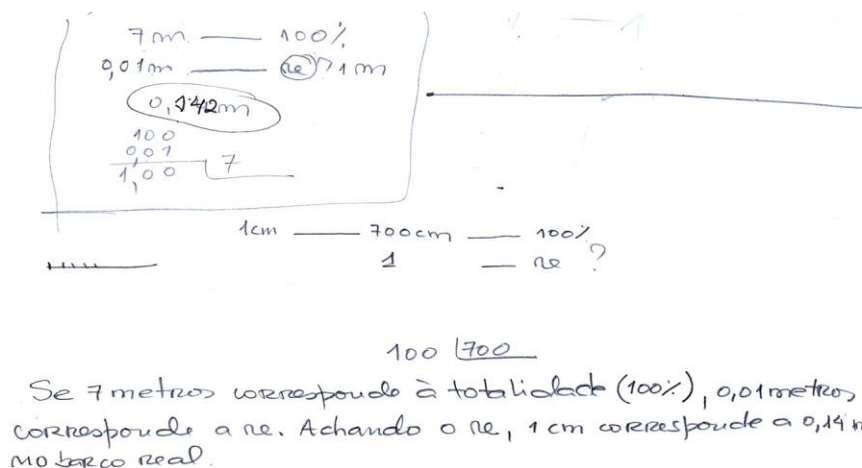 7m — 100%
0,01m — x 1m
0,142m
100
0,01
1,00 7
1cm — 700cm — 100%
1 — x ?
100 700
Se 7 metros corresponde à totalidade (100%), 0,01 metros
corresponde a x. Achando o x, 1 cm corresponde a 0,14 m
no barco real.